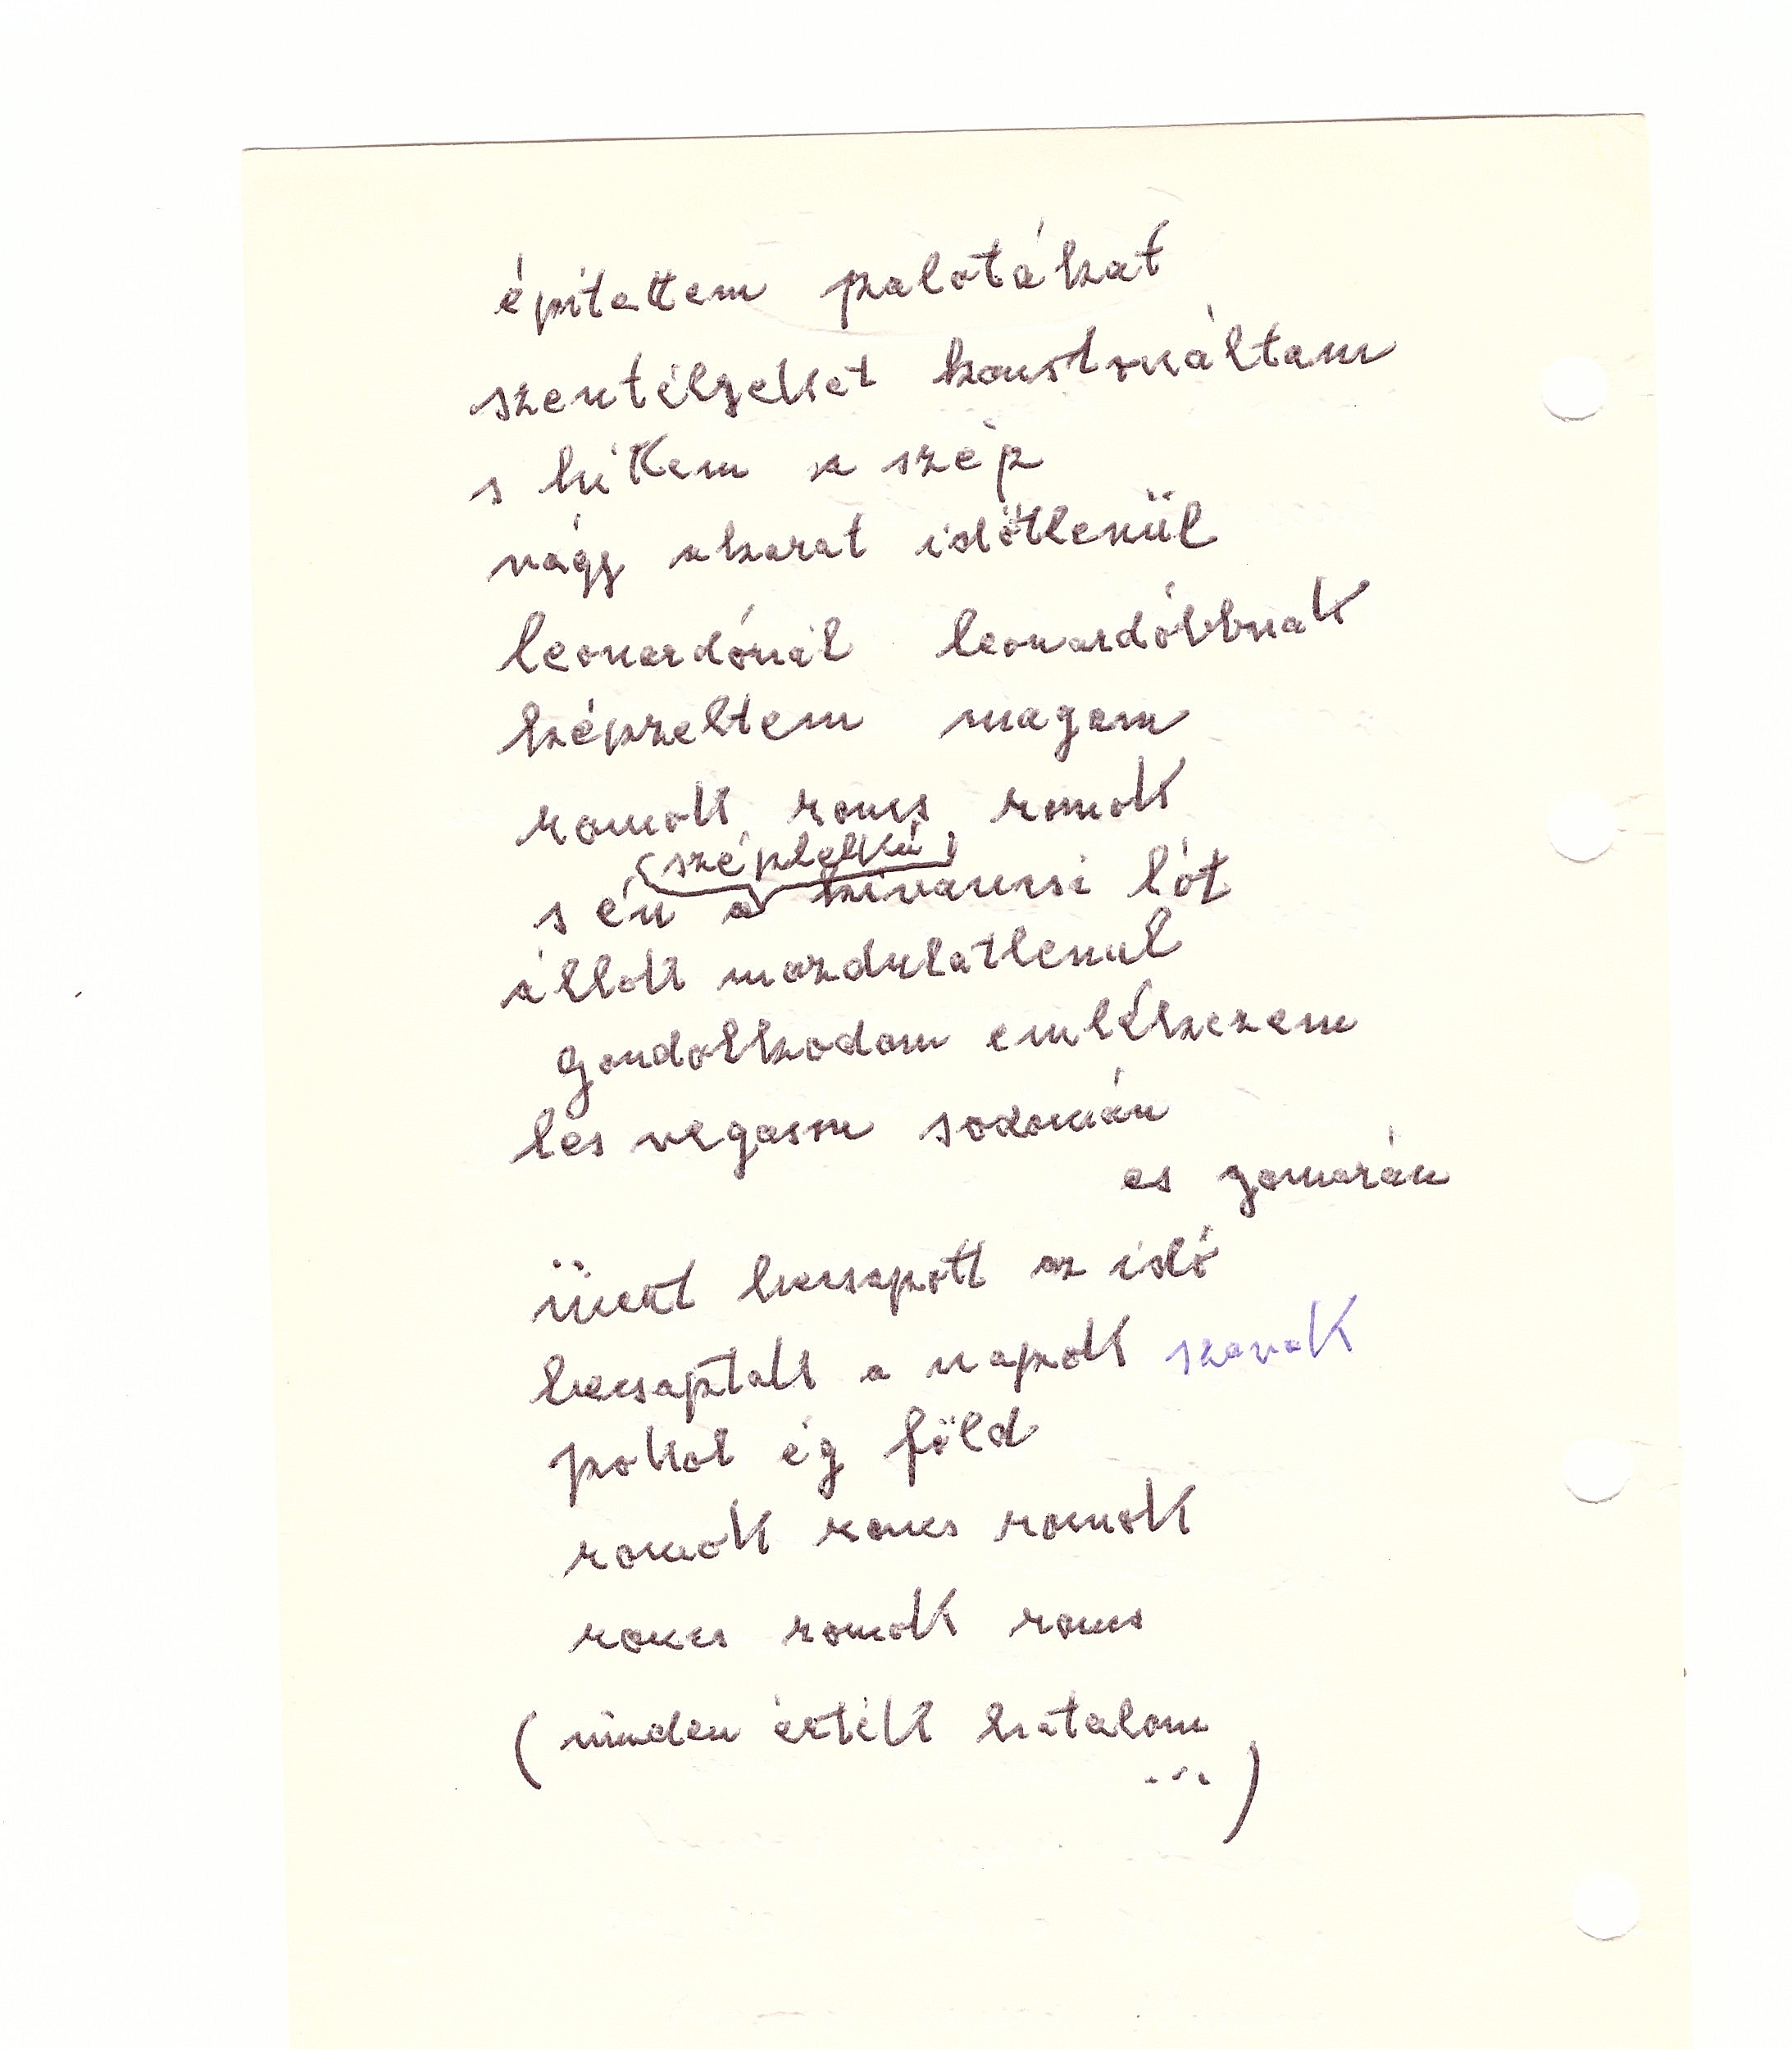 építettem palotákat
szentélyeket konstruáltam
s hittem a szép
vágy akarat időtlenül
leonardónál leonardóbbnak
képzeltem magam
romok roncs romok
(széplelkű)
s én a kíváncsi lót
állok mozdulatlenul
gondolkodom emlékezem
las vegason sodomán
es gomorán
üment lecsapott az idő
lecsaptak a napok szavak
pokol ég föld
romok roncs romok
roncs romok roncs
(minden érték hatalom
...)